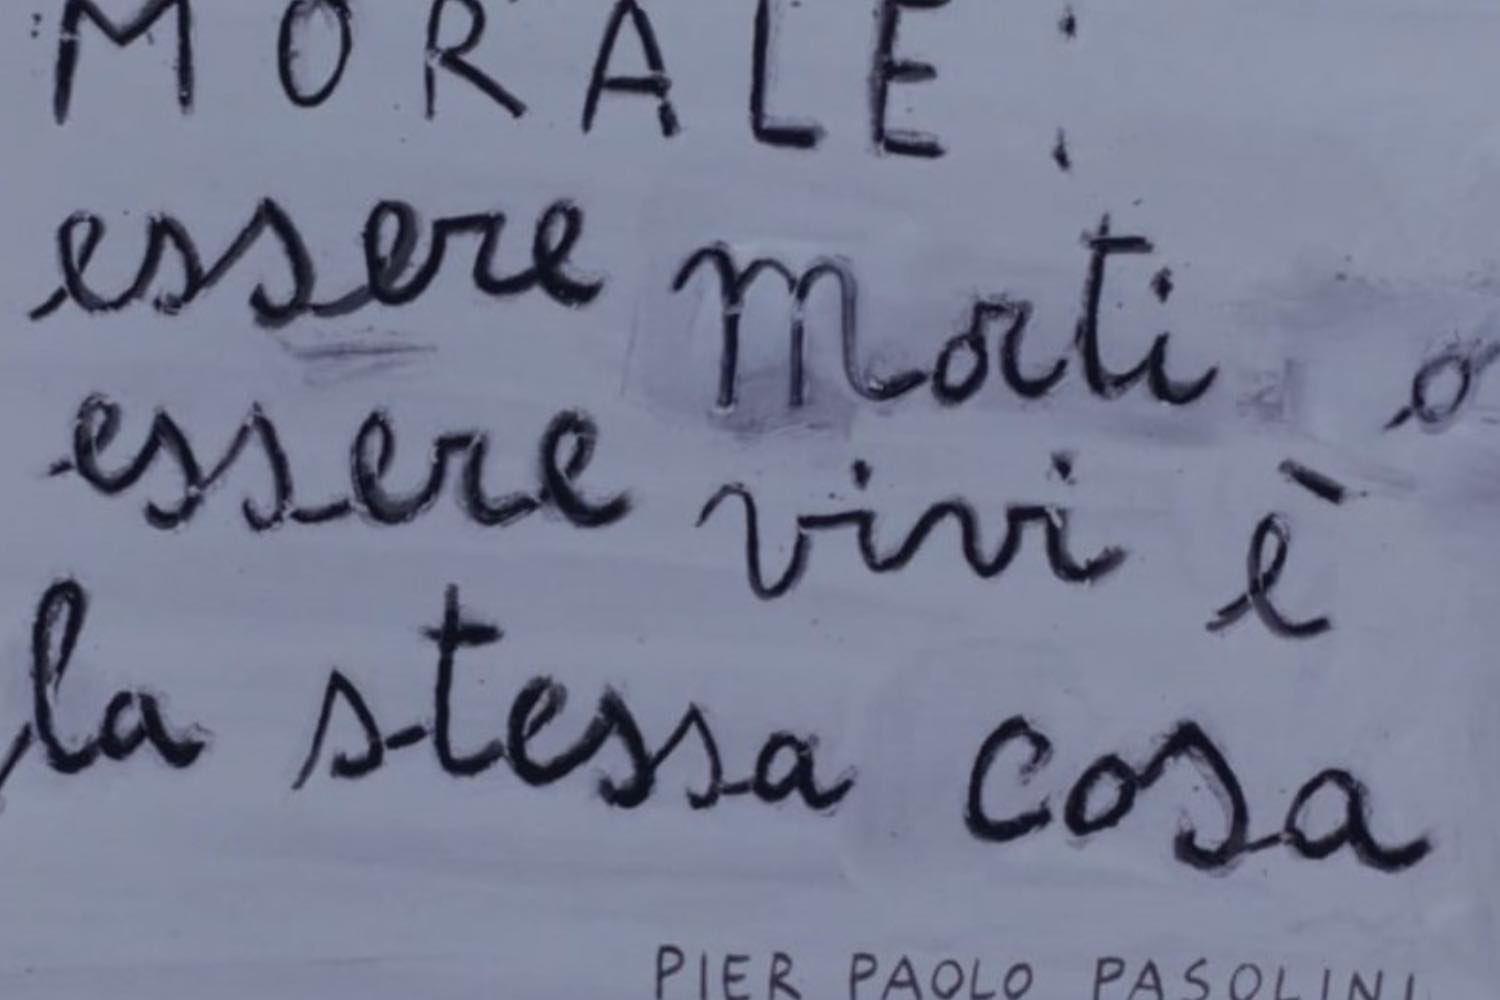 MORALE:
essere morti o
essere vivi è
la stessa cosa
PIER PAOLO PASOLINI